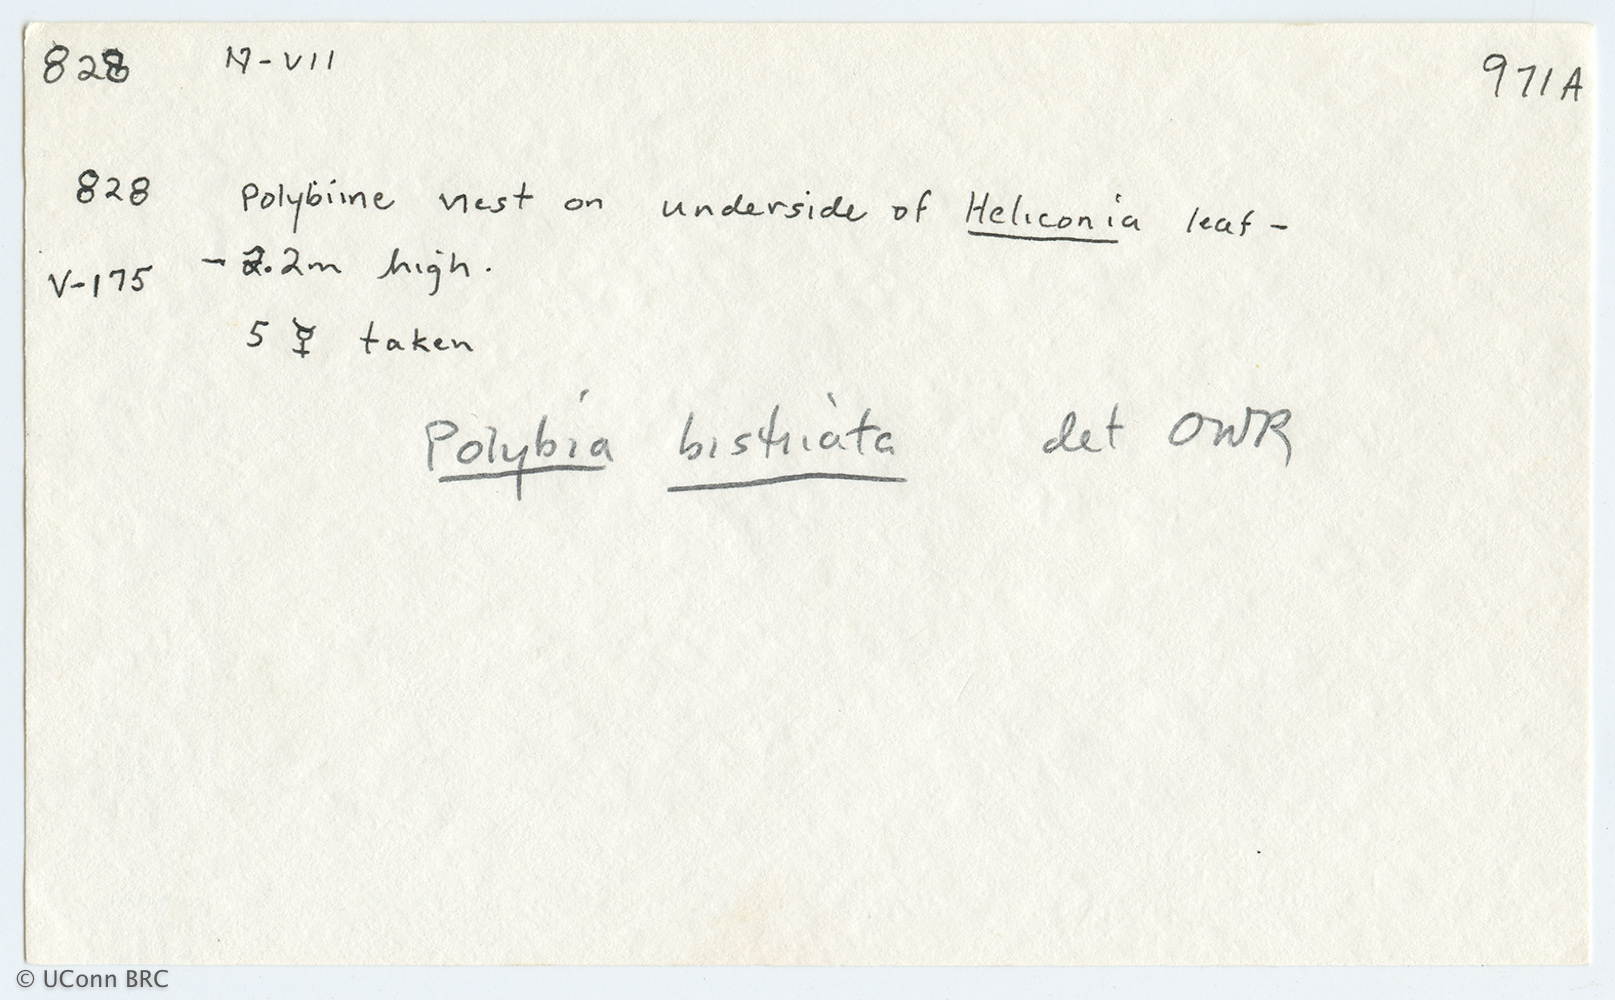 828 17-VII 971A
828 Polybiine nest on underside of Heliconia leaf -
V-175 - 2.2m high.
5 ☿ taken
Polybia bistriata det OWR
© UConn BRC